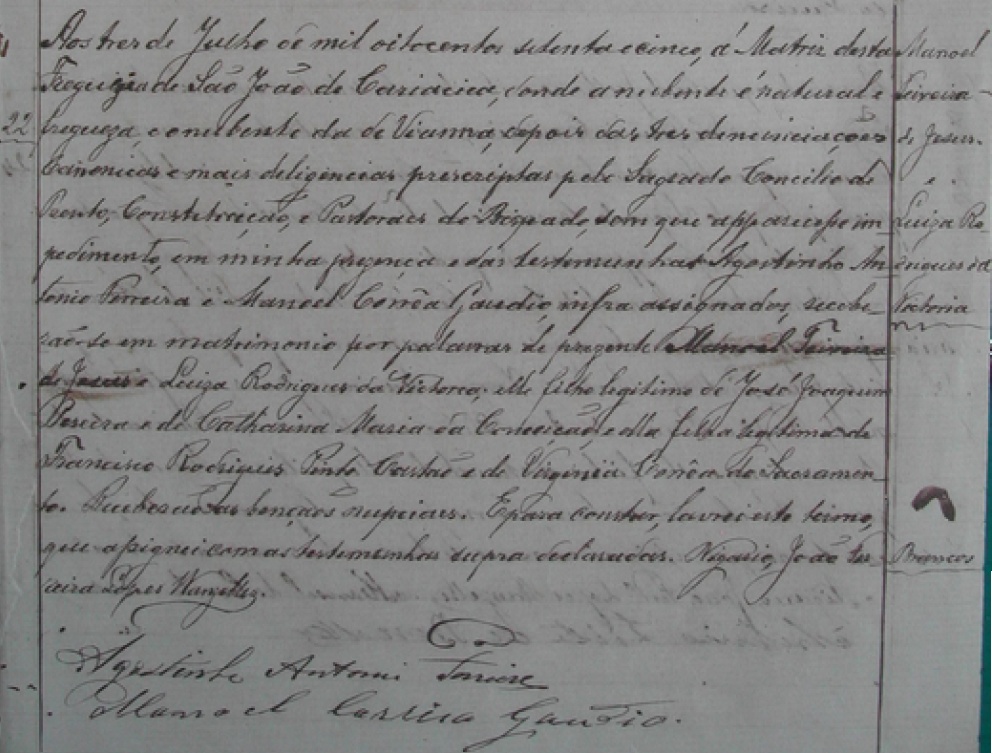 Aos tres de Julho de mil oitocentos setenta e cinco, á Matriz desta
Freguezia de São João de Cariacica, donde a nubente é natural e
fregueza, e o nubente da de Vianna, depois das tres denunciações
Canonicas e mais diligencias prescriptas pelo Sagrado Concilio de
Trento, Constituição, e Pastoraes do Bispado, sem que apparecesse im-
pedimento, em minha prezença e das testemunhas Agostinho An-
tonio Ferreira e Manoel Corrêa Gaudio, infra assignados, recebe-
rão-se em matrimonio por palavras de prezente Manoel Teixeira
de Jesus e Luiza Rodrigues da Victoria; elle filho legitimo de José Joaquim
Pereira e de Catharina Maria da Conceição, e ella filha legitima de
Francisco Rodrigues Pinto e de Virginia Corrêa do Sacramen-
to. Receberão as bençãos nupciaes. E para constar, lavrei este termo,
que assignei com as testemunhas supra declaradas. Vigario, João Fer-
reira Lopes Wanzeller.
Agostinho Antonio Ferreira
Manoel Correia Gaudio.
Manoel
Teixeira
de Jesus.
e
Luiza Ro-
drigues da
Victoria
Brancos
22